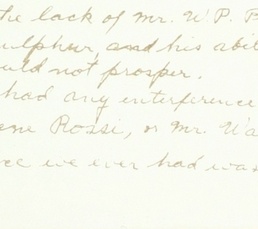 the lack of Mr. W. P. B
ulphur, and his abil
ould not prosper.
had any interference
ene Rossi, or Mr. Wa
ce we ever had was